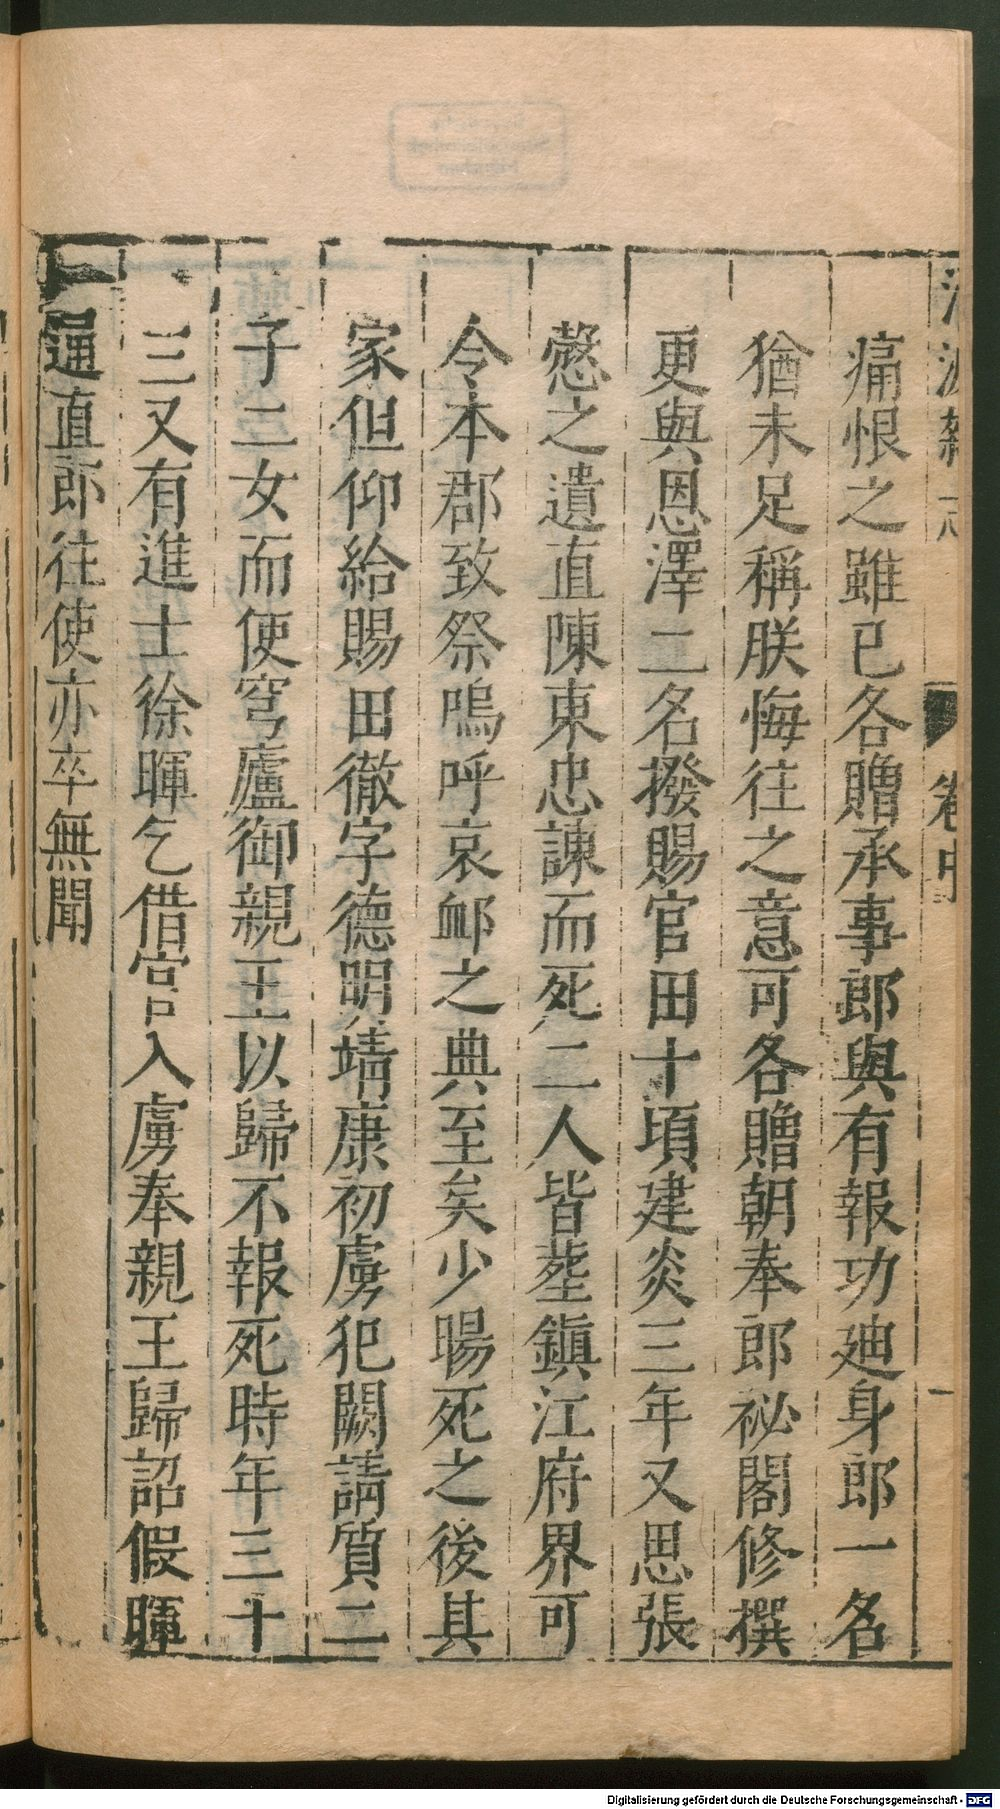 卷中
痛恨之雖已各贈承事郎與有報功廸身郎一名
猶未足稱朕悔往之意可各贈朝奉郎祕閣修撰
更與恩澤二名撥賜官田十頃建炎三年又思張
慤之遺直陳東忠諫而死二人皆塟鎮江府界可
令本郡致祭嗚呼哀邺之典至矣少暘死之後其
家但仰給賜田徹字德明靖康初虜犯闕請質二
子二女而使穹廬御親王以歸不報死時年三十
三又有進士徐暉乞借官入虜奉親王歸詔假暉
通直郎往使亦卒無聞
Digitalisierung gefördert durch die Deutsche Forschungsgemeinschaft - DFG